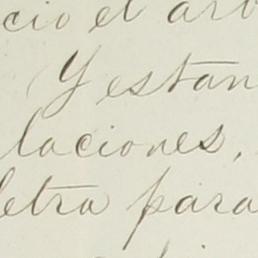 cio el arb
Y estan
laciones,
letra para